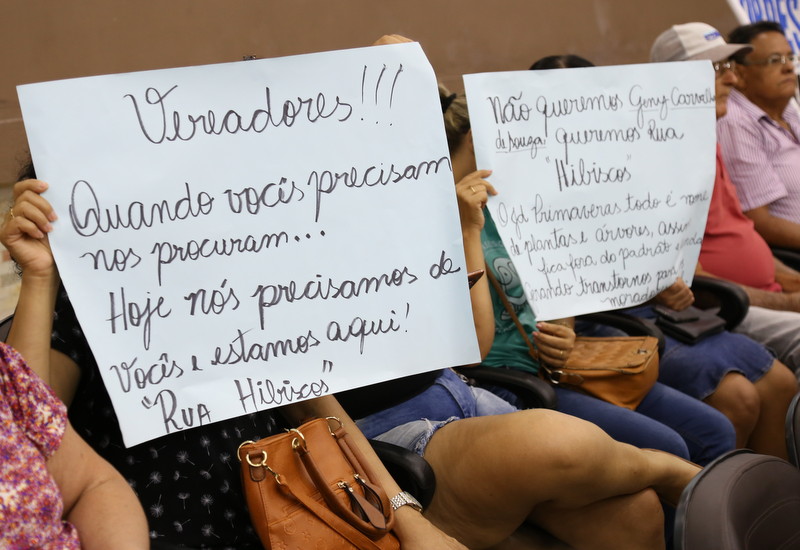 Vereadores!!!
Quando vocês precisam
nos procuram...
Hoje nós precisamos de
vocês e estamos aqui!
"RUA Hibiscos"
Não queremos Geny Carvalho
de Souza! queremos Rua
"Hibiscos"
O jd Primaveras todo é nome
de plantas e árvores, assim
fica fora do padrão e
transtornos para